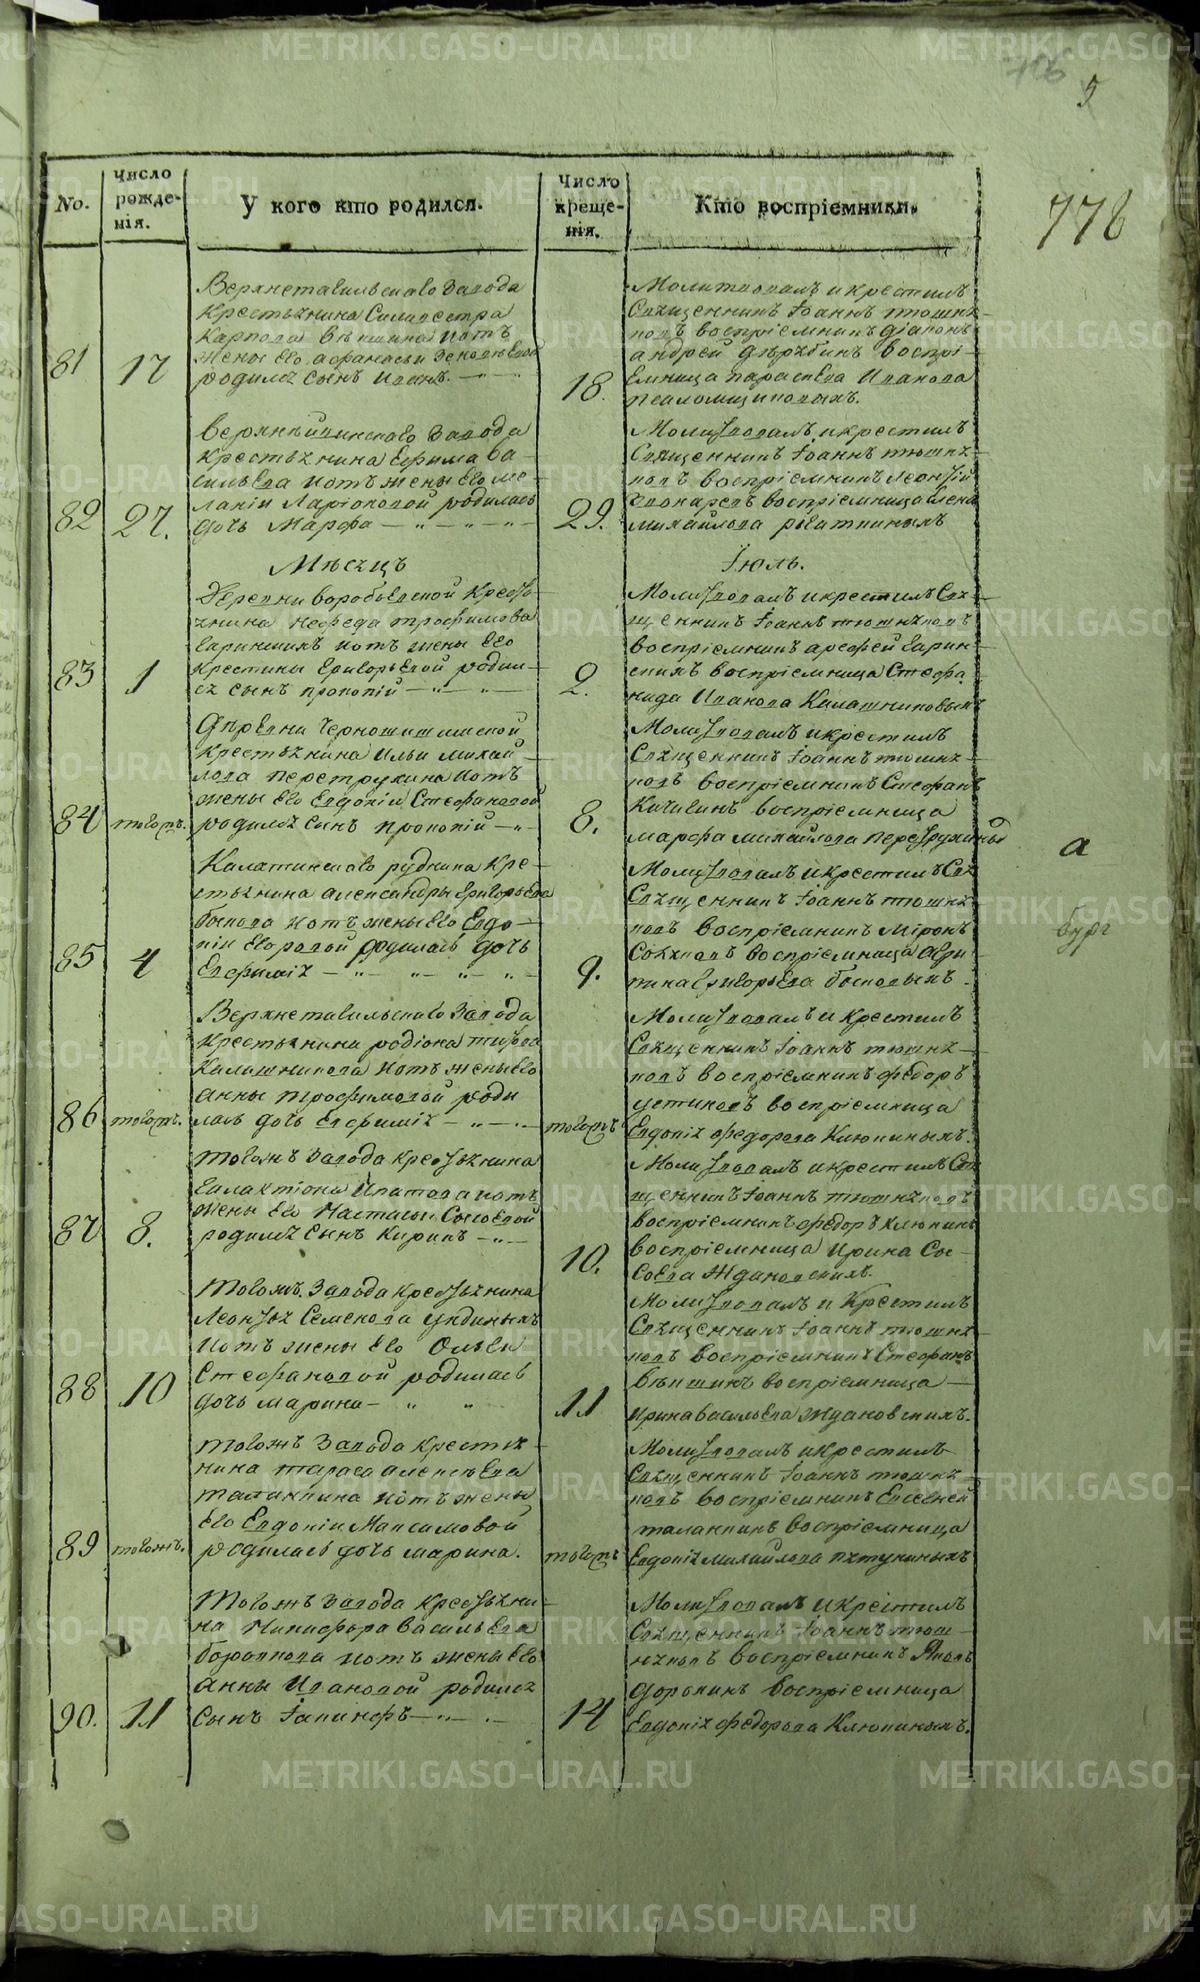 706
5
776
No.
Число рожде-нія.
У кого кто родился.
Число креще-нія.
Кто воспріемники.
Верхнетагильскаго завода
крестьянина Силивестра
Карпова Вяткина и отъ
жены его
81
17
родился сынъ Иванъ.
18.
Молитвовалъ и крестилъ
Священникъ Іоаннъ Тюшня-
ковъ воспріемникъ діаконъ
андрей воспрі-
емница параскева Иванова
Верхнейвинскаго завода
крестьянина Ефима Ва-
сильева и отъ жены его ме-
ланіи Ларіоновой родилась
82
27.
дочь Марфа
29.
Молитвовалъ и крестилъ
Священникъ Іоаннъ тюшня-
ковъ воспріемникъ леонтій
воспріемница
михайлова
Мѣсяцъ
Іюль.
Деревни воробьевской кресть-
янина нефеда трофимова
и отъ жены его
83
1
крестины григорьевой родил-
ся сынъ прокопій
2.
Молитвовалъ и крестилъ Свя-
щенникъ Іоаннъ тюшняковъ
воспріемникъ арефей гарин-
скихъ воспріемница Стефа-
нида Иванова Калашниковыхъ
деревни Черношишимской
крестьянина Ильи михай-
лова перетрухина и отъ
жены его Евдокіи Стефановой
84
тогожъ.
родился сынъ прокопій
8.
Молитвовалъ и крестилъ
Священникъ Іоаннъ тюшня-
ковъ воспріемникъ Стефанъ
Кичигинъ воспріемница
марфа михайлова перетрухиныхъ
а
Калатинскаго рудника кре-
стьянина александры григорьева
и отъ жены его Евдо-
кіи Егоровой родилась дочь
85
4
Евфимія
9.
Молитвовалъ и крестилъ Свя
Священникъ Іоаннъ тюшня-
ковъ воспріемникъ Міронъ
воспріемница
григорьева
Верхнетагильскаго завода
крестьянина родіона титова
Калашникова и отъ жены его
анны трофимовой роди
86
тогожъ.
лась дочь Евфимія
тогожъ
Молитвовалъ и крестилъ
Священникъ Іоаннъ тюшня-
ковъ воспріемникъ федоръ
устиновъ воспріемница
Евдокія федорова Клюкиныхъ.
тогожъ завода крестьянина
галактіона Ипатова и отъ
жены его Настасьи Сысоевой
87
8.
родился сынъ Кирикъ
10.
Молитвовалъ и крестилъ Свя
щенникъ Іоаннъ тюшняковъ
воспріемникъ федоръ клюкинъ
воспріемница ирина Сы-
соева Ждановскихъ.
тогожъ завода крестьянина
Леонтья Семенова ундиныхъ
и отъ жены его Ольги
88
10
Стефановой родилась
дочь марина
11
Молитвовалъ и крестилъ
Священникъ Іоаннъ тюшня-
ковъ воспріемникъ Стефанъ
воспріемница
ирина васильева ждановскихъ.
тогожъ завода крестья-
нина тараса алексѣева
таланкина и отъ жены
его Евдокіи Максимовой
89
тогожъ.
родилась дочь марина.
тогожъ
Молитвовалъ и крестилъ
Священникъ Іоаннъ тюшня-
ковъ воспріемникъ Евсевней
таланкинъ воспріемница
Евдокія михайлова пятуниныхъ
тогожъ завода крестьяни-
на Никифора Васильева
и отъ жены его
анны Ивановой родился
90.
11
сынъ Іакинфъ
14
Молитвовалъ и крестилъ
Священникъ Іоаннъ тюш-
няковъ воспріемникъ Яковъ
дорокинъ воспріемница
Евдокія федорова Клюкиныхъ.
METRIKI.GASO-URAL.RU